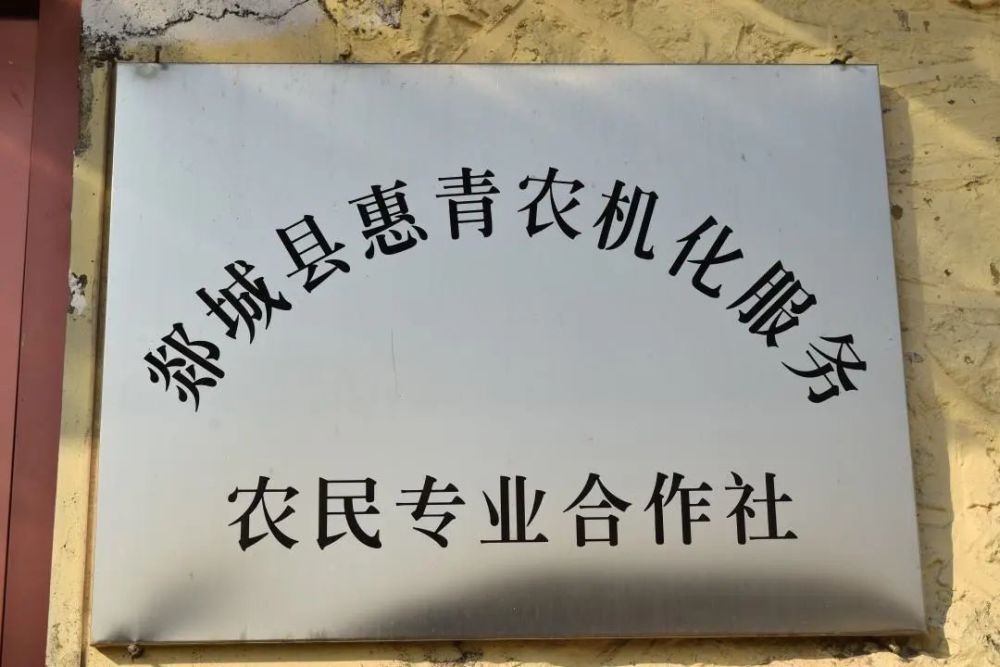 郯城县惠青农机化服务
农民专业合作社